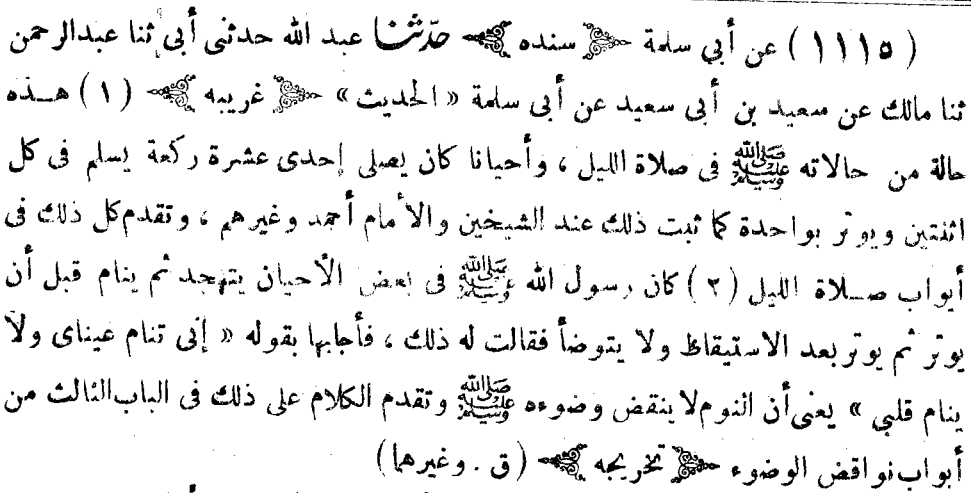 ( ١١١٥ ) عن أبي سلمة ﴿ سنده ﴾ حدثنا عبد الله حدثنى أبى ثنا عبدالرحمن
ثنا مالك عن سعيد بن أبى سعيد عن أبى سلمة « الحديث » ﴿ غريبه ﴾ ( ١ ) هــذه
حالة من حالاته ﷺ فى صلاة الليل ، وأحيانا كان يصلى إحدى عشرة ركعة يسلم فى كل
اثنتين ويوتر بواحدة كما ثبت ذلك عند الشيخين والأمام أحمد وغيرهم ، وتقدم كل ذلك فى
أبواب صــلاة الليل (٢) كان رسول الله ﷺ فى بعض الأحيان يتهجد ثم ينام قبل أن
يوتر ثم يوتر بعد الاستيقاظ ولا يتوضأ فقالت له ذلك ، فأجابها بقوله « إنى تنام عيناى ولا
ينام قلبي » يعنى أن النوم لا ينقض وضوءه ﷺ وتقدم الكلام على ذلك فى الباب الثالث من
أبواب نواقض الوضوء ﴿ تخريجه ﴾ (ق . وغيرهما)